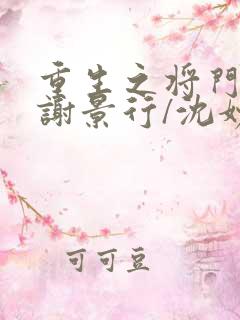 重生之将门
謝景行/沈妙
可可豆